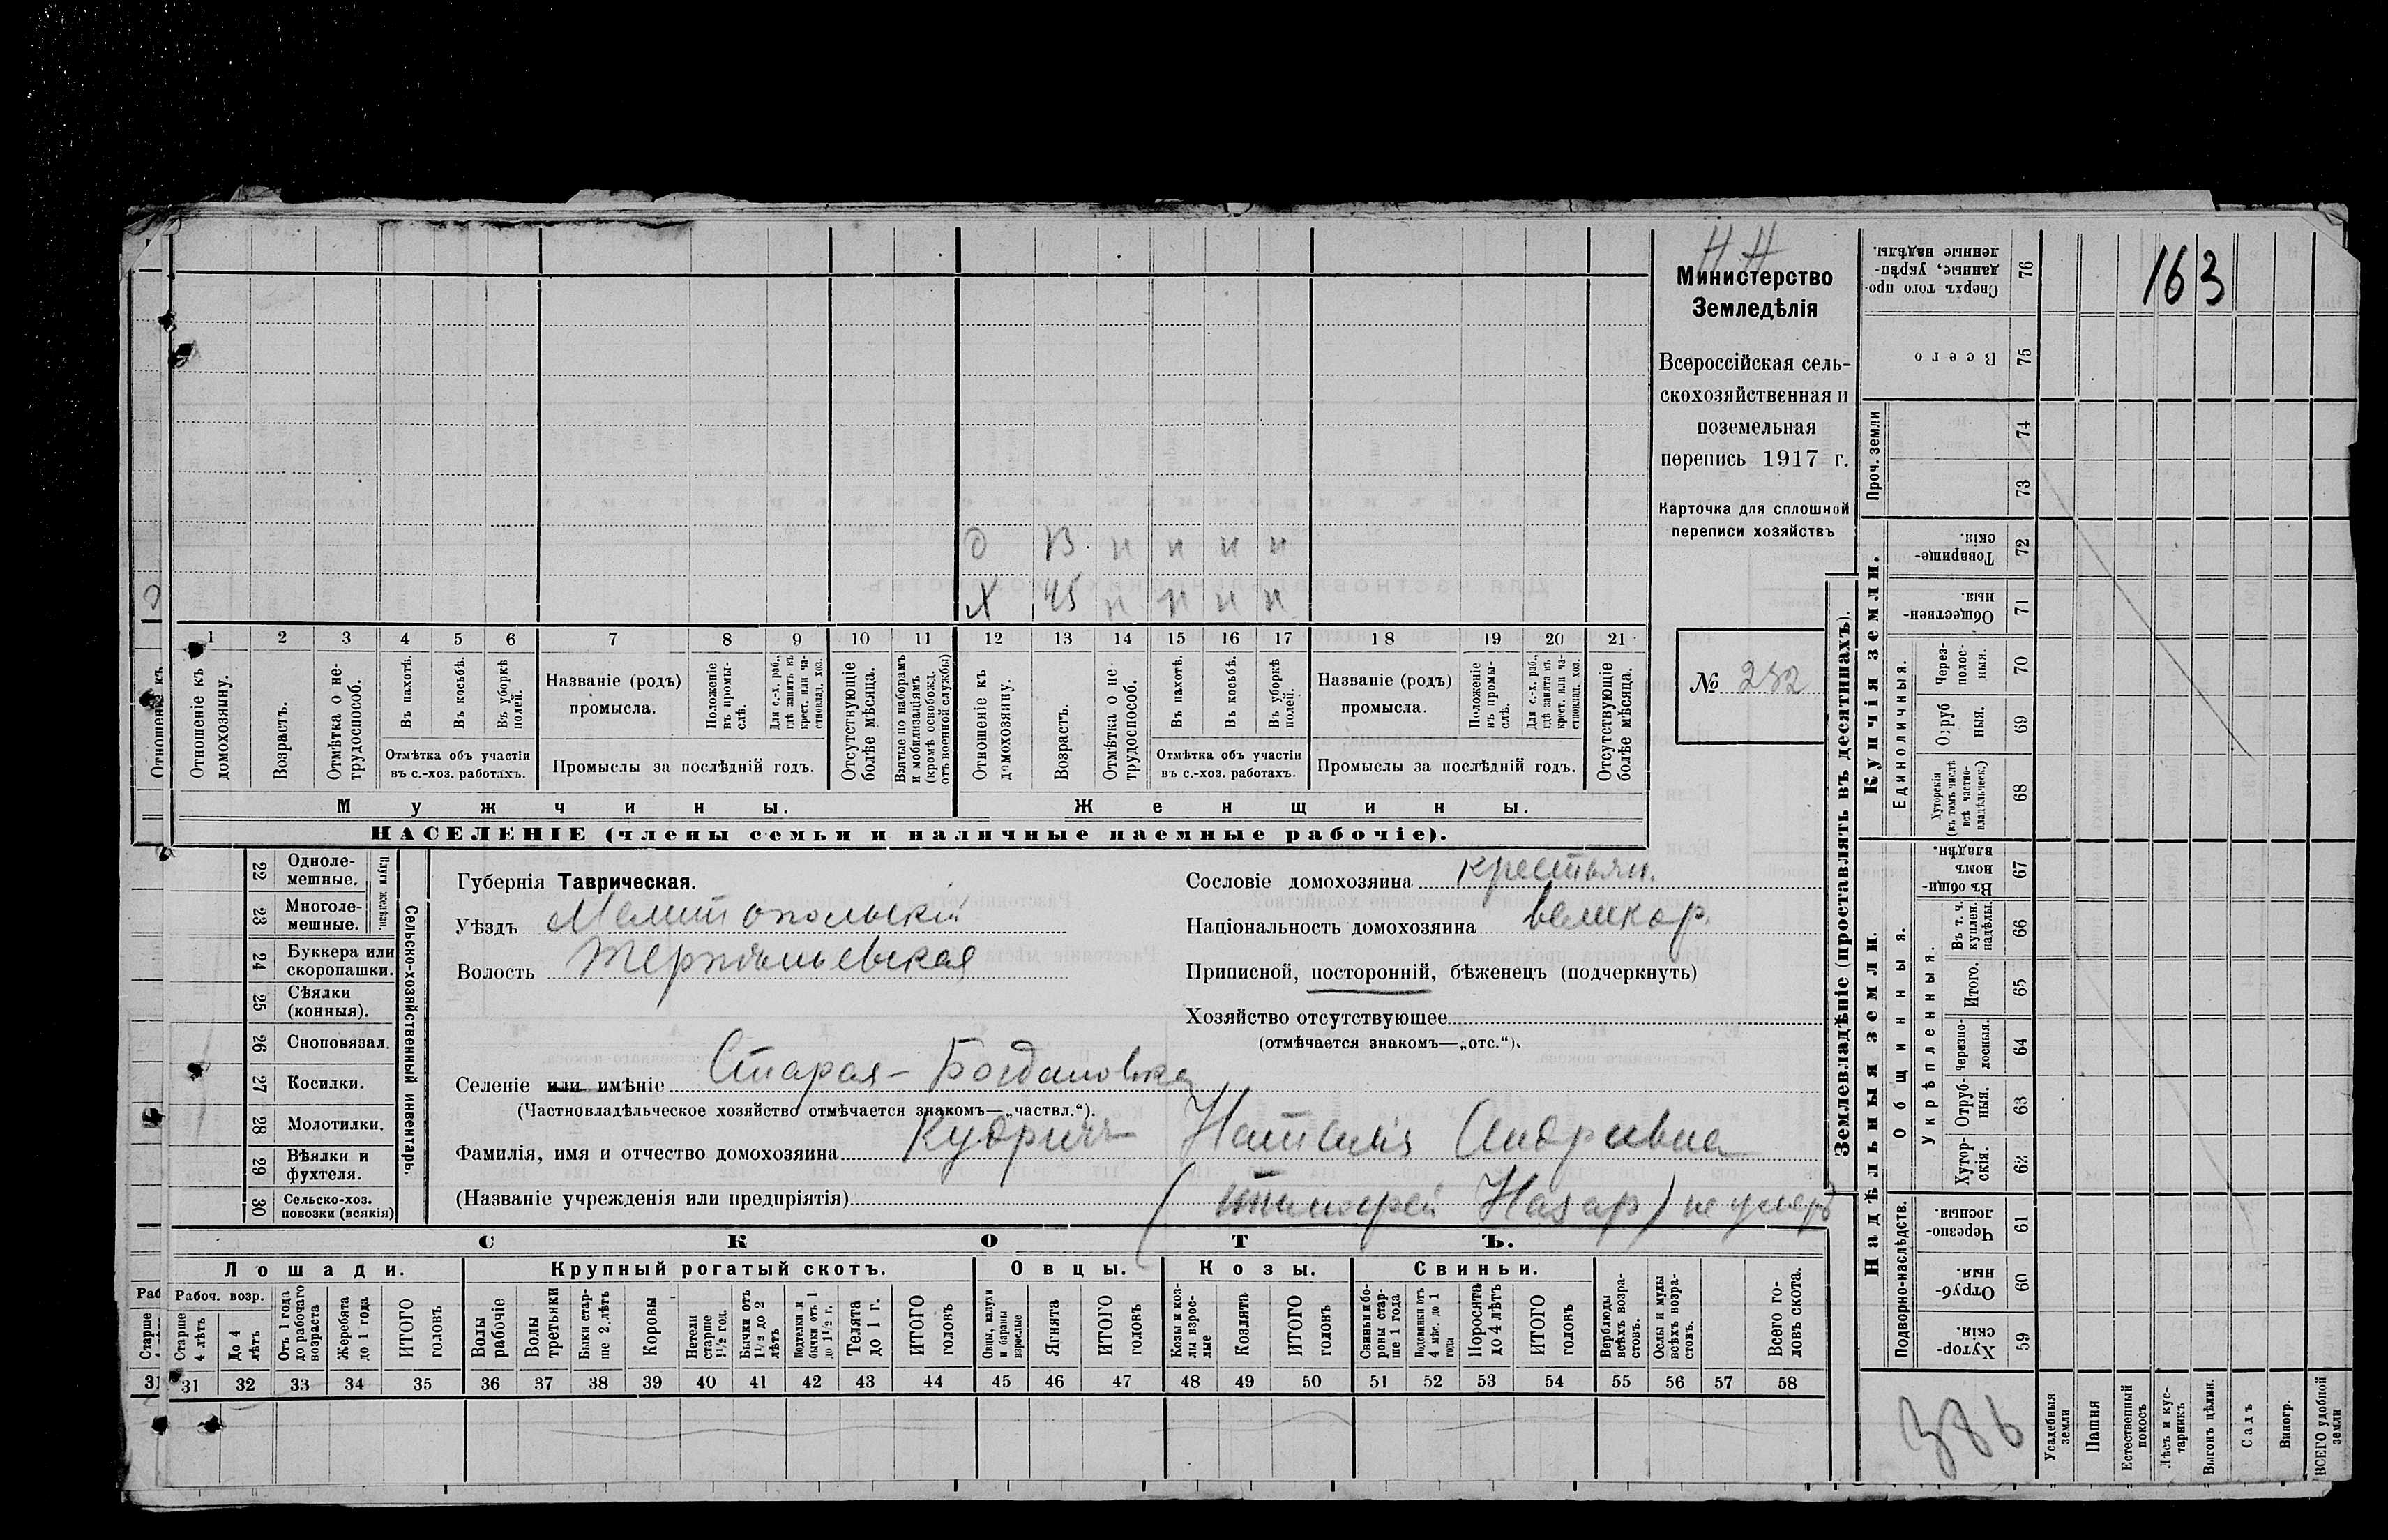 Н Н
Министерство
Земледѣлія
Всероссійская сель-
скохозяйственная и
поземельная
перепись 1917 г.
Карточка для сплошной
переписи хозяйствъ
№ 252
163
д 13 н н н н
х 45 н н н н
1 2 3 4 5 6 7 8 9 10 11 12 13 14 15 16 17 18 19 20 21
Отношеніе къ домохозяину.
Возрастъ.
Отмѣтка о не-трудоспособ.
Въ пахотѣ.
Въ косьбѣ.
Въ уборкѣ полей.
Отмѣтка объ участіи
въ с.-хоз. работахъ.
Названіе (родъ)
промысла.
Положеніе въ промы-слѣ.
Для с.-х. раб., гдѣ занятъ въ крест. или ча-стновлад. хоз.
Промыслы за послѣдній годъ.
Отсутствующіе болѣе мѣсяца.
Взятые по наборамъ и мобилизаціямъ (кромѣ освобожд. отъ военной службы)
Отношеніе къ домохозяину.
Возрастъ.
Отмѣтка о не-трудоспособ.
Въ пахотѣ.
Въ косьбѣ.
Въ уборкѣ полей.
Отмѣтка объ участіи
въ с.-хоз. работахъ.
Названіе (родъ)
промысла.
Положеніе въ промы-слѣ.
Для с.-х. раб., гдѣ занята въ крест. или ча-стновлад. хоз.
Промыслы за послѣдній годъ.
Отсутствующіе болѣе мѣсяца.
Мужчины.
Женщины.
НАСЕЛЕНІЕ (члены семьи и наличные наемные рабочіе).
22 Одноле-мешные.
23 Многоле-мешные.
Плуги желѣзн.
24 Буккера или скоропашки.
25 Сѣялки (конныя).
26 Сноповязал.
27 Косилки.
28 Молотилки.
29 Вѣялки и фухтеля.
30 Сельско-хоз. повозки (всякія)
Сельско-хозяйственный инвентарь.
Губернія Таврическая.
Уѣздъ Мелитопольскій
Волость Терпѣньевская
Селеніе или имѣніе Старая-Богдановка
(Частновладѣльческое хозяйство отмѣчается знакомъ—„частвл.“).
Фамилія, имя и отчество домохозяина Кудрин Наталія Андривна
(Названіе учрежденія или предпріятія) ( Назар) не умеръ
Сословіе домохозяина крестьян.
Національность домохозяина великор.
Приписной, посторонній, бѣженецъ (подчеркнуть)
Хозяйство отсутствующее
(отмѣчается знакомъ—„отс.“).
СКОТЪ.
Лошади. Крупный рогатый скотъ. Овцы. Козы. Свиньи.
Рабоч. возр.
Старше 4 лѣтъ
До 4 лѣтъ
Отъ 1 года до рабочаго возраста
Жеребята до 1 года
ИТОГО головъ
Волы рабочіе
Волы третьяки
Быки стар-ше 2 лѣтъ
Коровы
Нетели старше 1½ год.
Бычки отъ 1½ до 2 лѣтъ
Подтелки и бычки отъ 1 до 1½ г.
Телята до 1 г.
ИТОГО головъ
Овцы, валухи и бараны взрослые
Ягнята
ИТОГО головъ
Козы и коз-лы взрос-лые
Козлята
ИТОГО головъ
Свиньи и бо-ровы стар-ше 1 года
Подсвинки отъ 4 мѣс. до 1 года
Поросята до 4 лѣтъ
ИТОГО головъ
Верблюды всѣхъ возра-стовъ.
Ослы и мулы всѣхъ возра-стовъ.
Всего го-ловъ скота.
31 32 33 34 35 36 37 38 39 40 41 42 43 44 45 46 47 48 49 50 51 52 53 54 55 56 57 58
Землевладѣніе (проставлять въ десятинахъ).
Купчія земли.
Надѣльныя земли.
Проч. земли
Единоличныя.
Общинныя.
Укрѣпленныя.
Подворно-наслѣдств.
Сверхъ того про-данные, укрѣп-ленные надѣлы. 76
Всего 75
74
73
Товарище-скія. 72
Обществен-ныя. 71
Через-полос-ныя. 70
Отруб-ныя. 69
Хуторскія (въ томъ числѣ всѣ частно-владѣльческ.) 68
Въ общи-номъ владѣн. 67
Въ т. ч. куплен. надѣлы. 66
Итого. 65
Черезпо-лосныя. 64
Отруб-ныя. 63
Хутор-скія. 62
Черезпо-лосныя. 61
Отруб-ныя. 60
Хутор-скія. 59
386
Усадебныя земли
Пашня
Естественный покосъ
Лѣсъ и кус-тарникъ
Выгонъ цѣлин.
Садъ
Виногр.
ВСЕГО удобной земли